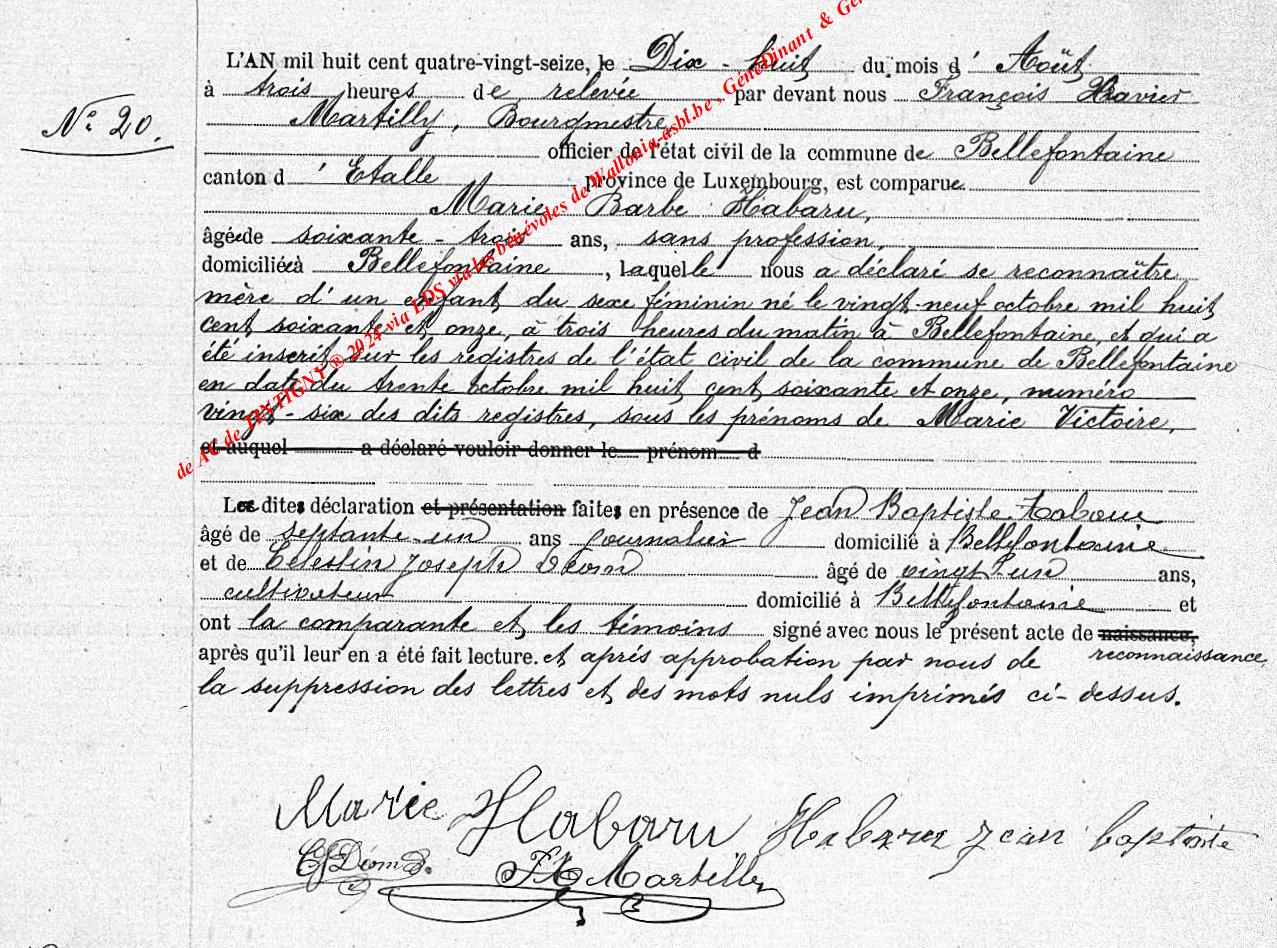 L'AN mil huit cent quatre-vingt-seize, le Dix-huit du mois d' Août
à trois heures de relevée par devant nous François Xavier
Martilly, Bourgmestre
Nº 20.
officier de l'état civil de la commune de Bellefontaine
canton d' Etalle province de Luxembourg, est comparue
Marie Barbe Habaru,
âgée de soixante-trois ans, sans profession,
domiciliée à Bellefontaine, laquelle nous a déclaré se reconnaître
mère d'un enfant du sexe féminin né le vingt-neuf octobre mil huit
cent soixante et onze, à trois heures du matin à Bellefontaine, et qui a
été inscrit sur les registres de l'état civil de la commune de Bellefontaine
en date du trente octobre mil huit cent soixante et onze, numéro
vingt-six des dits registres, sous les prénoms de Marie Victoire,
et auquel a déclaré vouloir donner le prénom d
La dite déclaration et présentation faite en présence de Jean Baptiste Habaru
âgé de septante un ans journalier domicilié à Bellefontaine
et de Célestin Joseph Déom âgé de vingt un ans,
cultivateur domicilié à Bellefontaine et
ont la comparante et les témoins signé avec nous le présent acte de naissance,
reconnaissance,
après qu'il leur en a été fait lecture. et après approbation par nous de
la suppression des lettres et des mots nuls imprimés ci-dessus.
Marie Habaru Habaru jean baptiste
CJ Déom FX Martilly
de AC de TINTIGNY ® 2024 via EDS via les bénévoles de Wallonia-asbl.be - GénéDinant & Gé